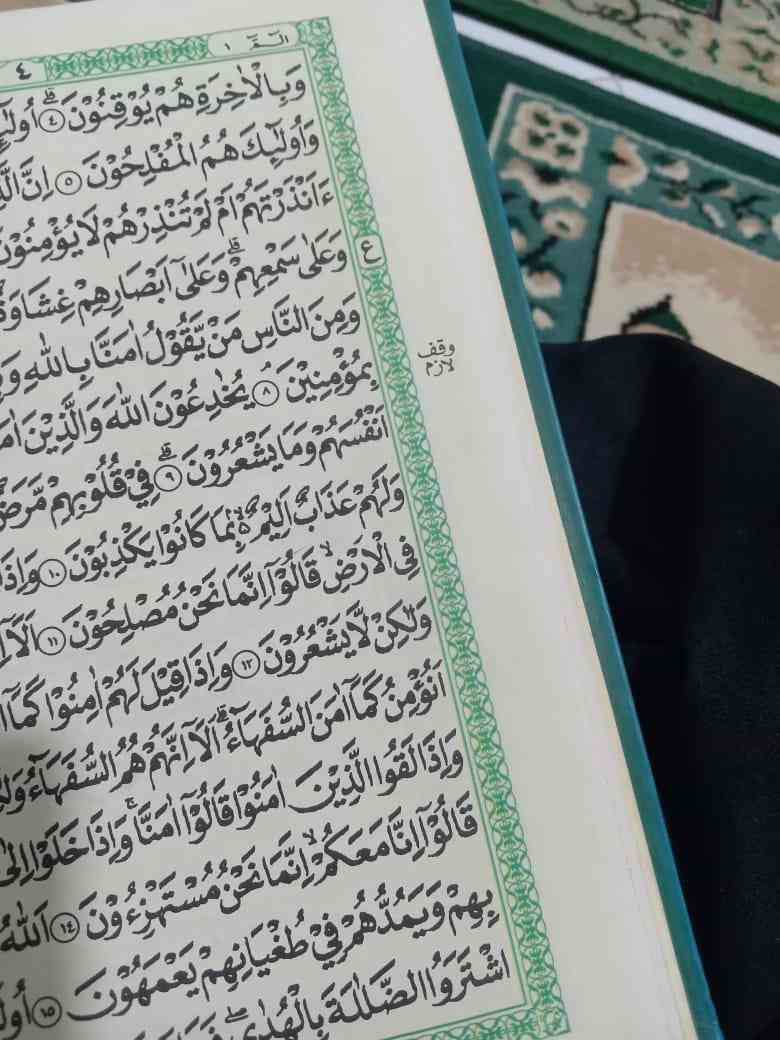 الٓمّٓ ١
٤
وَبِالْاٰخِرَةِ هُمْ يُوْقِنُوْنَ ۗ ٤
وَاُولٰٓئِكَ هُمُ الْمُفْلِحُوْنَ ٥ اِنَّ
ءَاَنْذَرْتَهُمْ اَمْ لَمْ تُنْذِرْهُمْ لَا يُؤْمِنُوْنَ
ع
وَعَلٰى سَمْعِهِمْ ۗ وَعَلٰٓى اَبْصَارِهِمْ غِشَاوَةٌ
وَمِنَ النَّاسِ مَنْ يَّقُوْلُ اٰمَنَّا بِاللّٰهِ
وقف لازم
بِمُؤْمِنِيْنَ ۘ ٨ يُخٰدِعُوْنَ اللّٰهَ وَالَّذِيْنَ
اَنْفُسَهُمْ وَمَا يَشْعُرُوْنَ ۗ ٩ فِيْ قُلُوْبِهِمْ مَّرَضٌ
وَلَهُمْ عَذَابٌ اَلِيْمٌ ۢ ەۙ بِمَا كَانُوْا يَكْذِبُوْنَ ١٠ وَاِذَا
فِى الْاَرْضِ ۙ قَالُوْٓا اِنَّمَا نَحْنُ مُصْلِحُوْنَ ١١ اَلَآ
وَلٰكِنْ لَّا يَشْعُرُوْنَ ١٢ وَاِذَا قِيْلَ لَهُمْ اٰمِنُوْا كَمَآ
اَنُؤْمِنُ كَمَآ اٰمَنَ السُّفَهَاۤءُ ۗ اَلَآ اِنَّهُمْ هُمُ السُّفَهَاۤءُ
وَاِذَا لَقُوا الَّذِيْنَ اٰمَنُوْا قَالُوْٓا اٰمَنَّا ۚ وَاِذَا خَلَوْا اِلٰى
قَالُوْٓا اِنَّا مَعَكُمْ ۙ اِنَّمَا نَحْنُ مُسْتَهْزِءُوْنَ ١٤ اَللّٰهُ
بِهِمْ وَيَمُدُّهُمْ فِيْ طُغْيَانِهِمْ يَعْمَهُوْنَ ١٥
اشْتَرَوُا الضَّلٰلَةَ بِالْهُدٰى ۖ